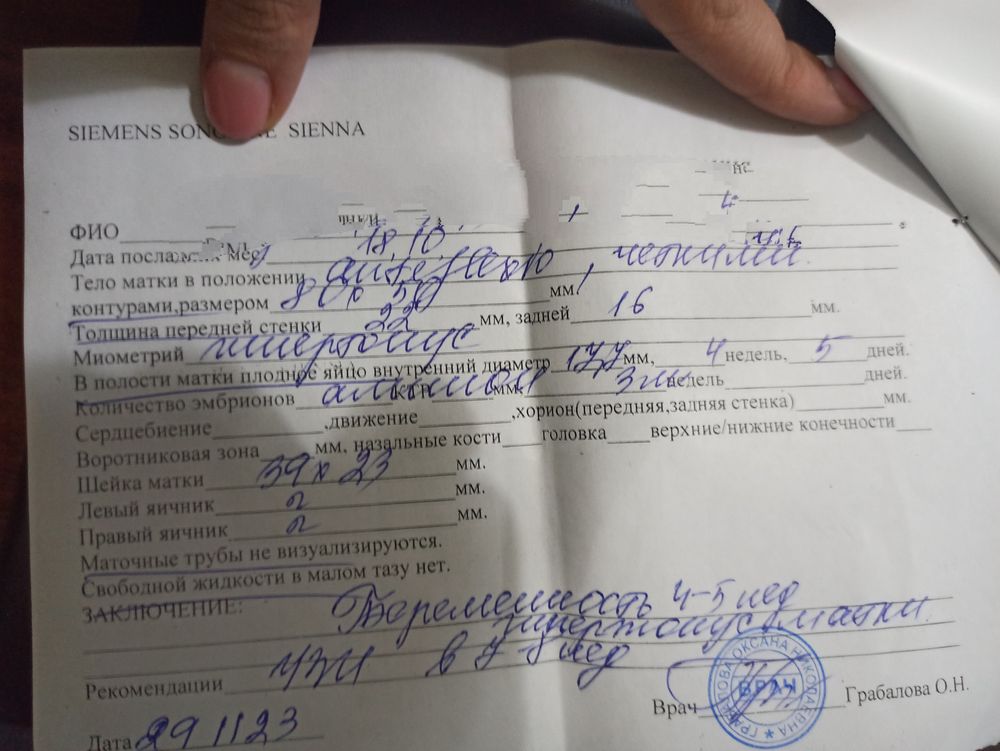 SIEMENS SONOLINE SIENNA
ФИО
Дата последних мес 18.10
Тело матки в положении антефлексио, четкими
контурами,размером 80х50 мм.
Толщина передней стенки 22 мм, задней 16 мм.
Миометрий гипертонус
В полости матки плодное яйцо внутренний диаметр 17,7 мм, 4 недель, 5 дней.
Количество эмбрионов КТР мм. недель дней.
Сердцебиение ,движение ,хорион(передняя,задняя стенка) мм.
Воротниковая зона мм, назальные кости головка верхние/нижние конечности
Шейка матки 39х23 мм.
Левый яичник мм.
Правый яичник мм.
Маточные трубы не визуализируются.
Свободной жидкости в малом тазу нет.
ЗАКЛЮЧЕНИЕ: Беременность 4-5 нед
гипертонус матки.
Рекомендации УЗИ в 7-8 нед
Врач Грабалова О.Н.
ГРАБАЛОВА ОКСАНА НИКОЛАЕВНА
ВРАЧ
Дата 291123